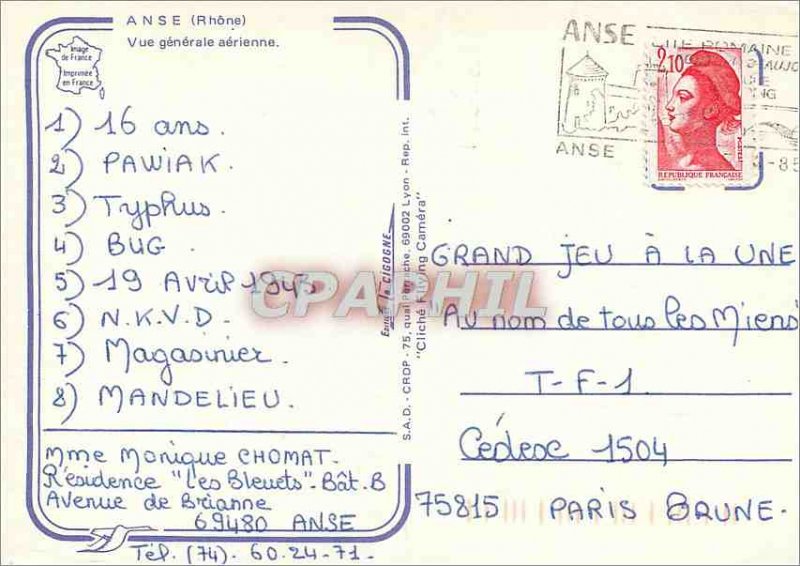 ANSE (Rhône)
Vue générale aérienne.
Image
de France
Imprimée
en France
1) 16 ans.
2) PAWIAK.
3) Typhus.
4) BUG
5) 19 Avril 1943
6) N.K.V.D.
7) Magasinier.
8) MANDELIEU.
Mme Monique CHOMAT.
Résidence "Les Bleuets". Bât. B
Avenue de Brianne
69480 ANSE
Tél. (74). 60.24.71.
Editions la CIGOGNE
S.A.D. - CROP - 75, quai Perrache, 69002 Lyon - Rep. int.
"Cliché Flying Caméra"
CPAPHIL
ANSE
ROMAINE
ANSE
-85
2,10
POSTES
REPUBLIQUE FRANÇAISE
GRAND JEU À LA UNE
Au nom de tous les Miens
T-F-1
Cédex 1504
75815 PARIS BRUNE.